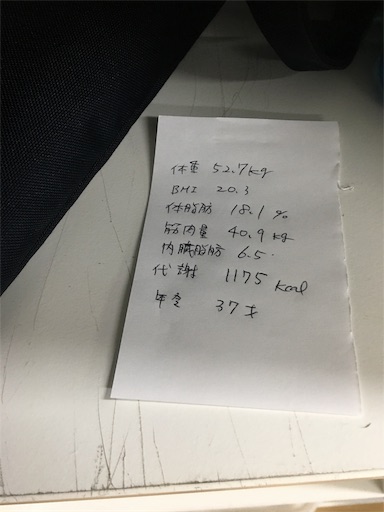 体重 52.7kg
BMI 20.3
体脂肪 18.1%
筋肉量 40.9kg
内臓脂肪 6.5
代謝 1175 Kcal
年令 37才